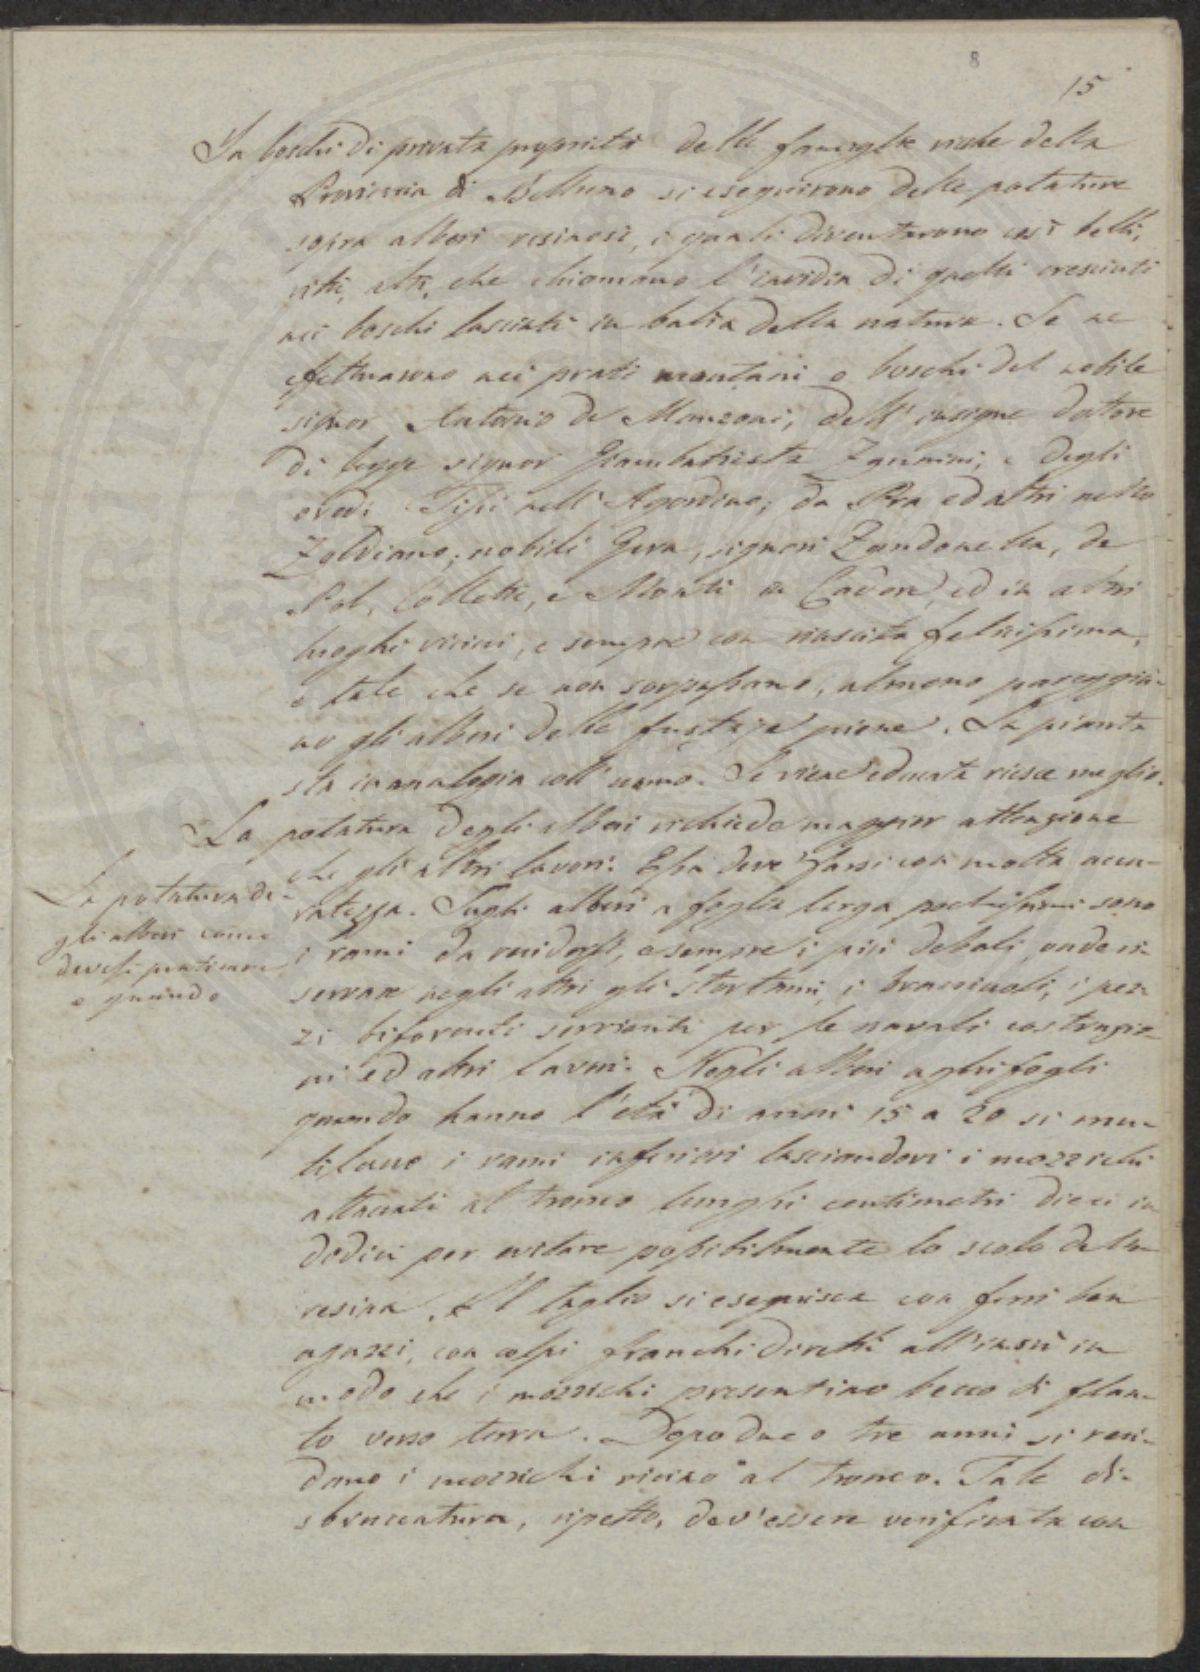 8
15
In boschi di privata proprietà delle famiglie ricche della
Provincia di Belluno si eseguirono delle potature
sopra alberi resinosi, i quali diventarono così belli,
ritti, alti, che chiamano l'invidia di quelli cresciuti
nei boschi lasciati in balia della natura. Se ne
effettuarono nei prati montani e boschi del nobile
signor Antonio de Manzoni, dell'insigne dottore
di legge signor Giambattista Zannini, e degli
eredi Tissi nell'Agordino; da Pra ed altri nello
Zoldiano; nobili Gera, signori Zandonella, de
Pol, Colletti, e Monti in Cadore, ed in altri
luoghi vicini, e sempre con riuscita felicissima,
e tale che se non sorpassano, almeno pareggia-
no gli alberi delle fustaje piene. La pianta
sta in analogia coll'uomo. Se viene educata riesce meglio.
La potatura degli alberi richiede maggior attenzione
che gli altri lavori. Essa deve farsi con molta accu-
ratezza. Sugli alberi a foglia larga pochissimi sono
i rami da recidersi, e sempre i più deboli, onde ri-
servare negli altri gli stortami, i bracciuoli, i pez-
zi biforcuti servienti per le navali costruzio-
ni ed altri lavori. Negli alberi aghifogli
quando hanno l'età di anni 15 a 20 si mu-
tilano i rami inferiori lasciandovi i mozzichi
attaccati al tronco lunghi centimetri dieci in
dodici per evitare possibilmente lo scolo della
resina. Il taglio si eseguisca con ferri ben
aguzzi, con colpi franchi diretti all'insù in
modo che i mozzichi presentino becco di flau-
to verso terra. Dopo due o tre anni si reci-
dano i mozzichi vicino al tronco. Tale di-
sbruccatura, ripetto, dev'essere verificata con
La potatura de-
gli alberi come
devesi praticare
e quando